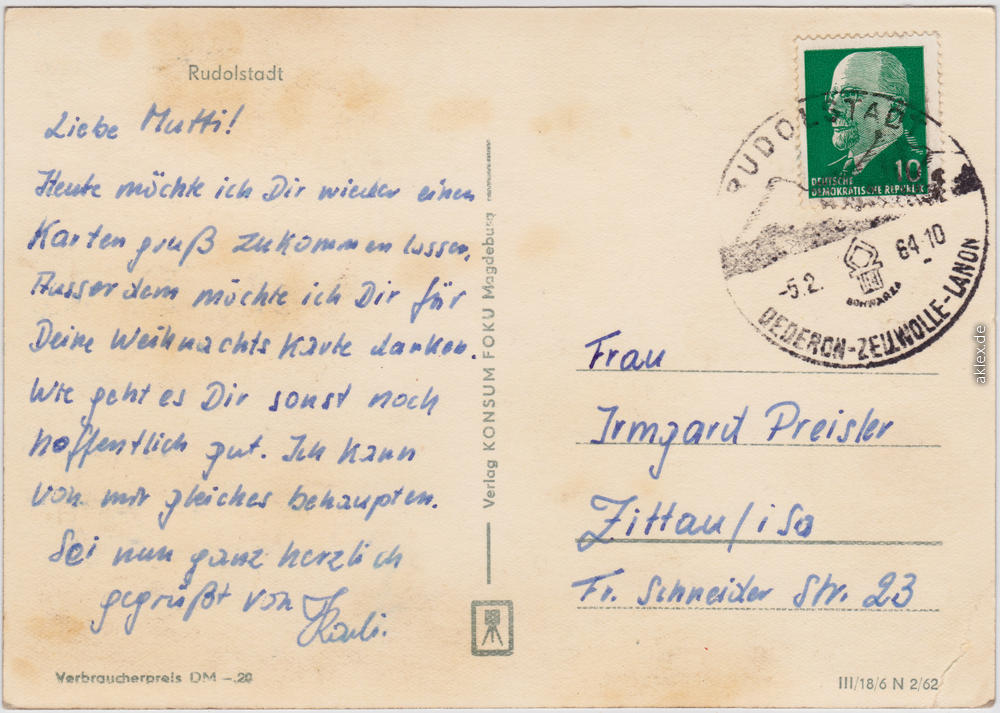 Rudolstadt
Liebe Mutti!
Heute möchte ich Dir wieder einen
Karten gruß zukommen lassen,
Ausserdem möchte ich Dir für
Deine Weihnachts Karte danken.
Wie geht es Dir sonst noch
hoffentlich gut. Ich kann
von mir gleiches behaupten.
Sei nun ganz herzlich
gegrüßt von
Verbraucherpreis DM –.20
Verlag KONSUM FOKU Magdeburg
10
DEUTSCHE
DEMOKRATISCHE REPUBLIK
RUDOLSTADT
-5.2. 64-10
SCHWARZA
DEDERON-ZELLWOLLE-LANON
Frau
Irmgard Preisler
Zittau/i Sa
Fr. Schneider Str. 23
III/18/6 N 2/62
aklex.de